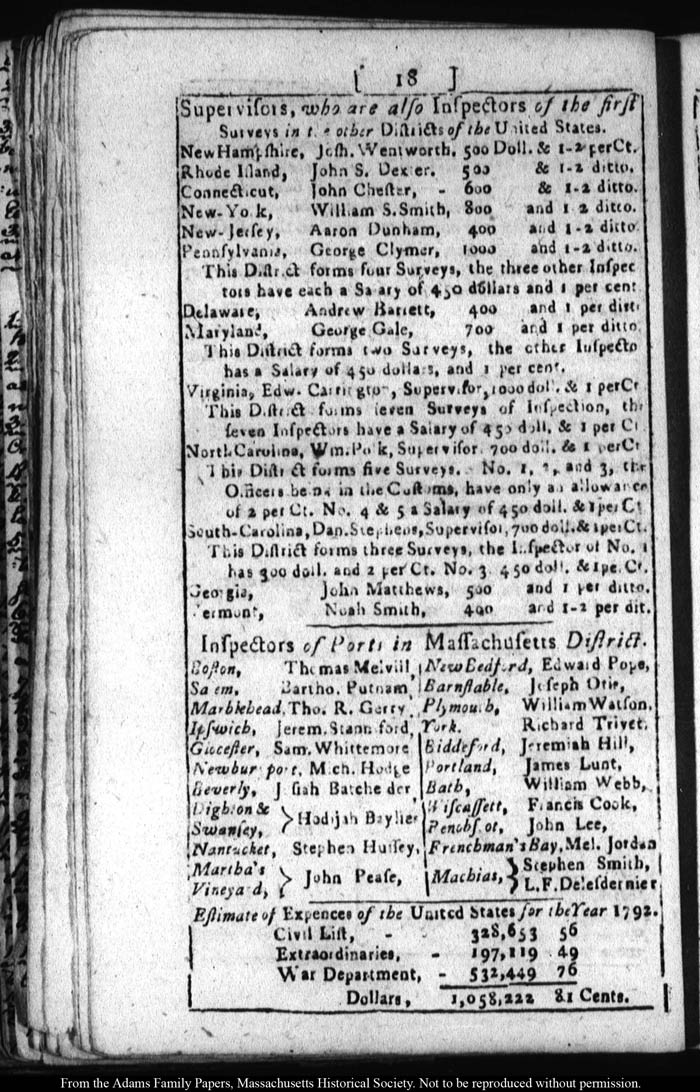 [ 18 ]
Superviſors, who are alſo Inſpectors of the firſt
Surveys in t e other Diſtricts of the United States.
New Hampſhire, Joſh. Wentworth, 500 Doll. & 1-2 per Ct.
Rhode Iſland, John S. Dexter. 500 & 1-2 ditto.
Connecticut, John Cheſter, - 600 & 1-2 ditto.
New-Yo k, William S. Smith, 800 and 1 2 ditto.
New-Jerſey, Aaron Dunham, 400 and 1-2 ditto
Pennſylvania, George Clymer, 1000 and 1-2 ditto.
This Diſtrict forms four Surveys, the three other Inſpec
tors have each a Sa ary of 450 dollars and 1 per cent
Delaware, Andrew Barrett, 400 and 1 per ditt
Maryland, George Gale, 700 and 1 per ditto
This Diſtrict forms two Surveys, the other Inſpecto
has a Salary of 450 dollars, and 1 per cent.
Virginia, Edw. Carrington, Superviſor, 1000 doll. & 1 per Ct
This Diſtrict forms ſeven Surveys of Inſpection, th
ſeven Inſpectors have a Salary of 450 doll, & 1 per Ct
North Carolina, Wm. Polk, Superviſor. 700 doll. & 1 per Ct
This Diſtrict forms five Surveys. No. 1, 2, and 3, the
Officers being in the Cuſtoms, have only an allowance
of 2 per Ct. No. 4 & 5 a Salary of 450 doll. & 1 per Ct
South-Carolina, Dan. Stephens, Superviſor, 700 doll. & 1 per Ct.
This Diſtrict forms three Surveys, the Inſpector of No. 1
has 300 doll. and 2 per Ct. No. 3. 450 doll. & 1 pe. Ct.
Georgia, John Matthews, 500 and 1 per ditto.
Vermont, Noah Smith, 400 and 1-2 per dit.
Inſpectors of Ports in Maſſachuſetts Diſtrict.
Boſton, Thomas Melvill, New Bedford, Edward Pope,
Sa em, Bartho. Putnam, Barnſtable, Joſeph Otis,
Marblehead, Tho. R. Gerry, Plymouth, William Watſon,
Ipſwich, Jerem. Stanniford, York. Richard Trivet,
Gloceſter, Sam. Whittemore Biddeford, Jeremiah Hill,
Newbur port, Mich. Hodge Portland, James Lunt,
Beverly, J ſiah Batche der, Bath, William Webb,
Dighton & Swanſey, } Hodijah Baylies Wiſcaſſett, Francis Cook,
Penobſ ot, John Lee,
Nantucket, Stephen Huſſey, Frenchman's Bay, Mel. Jordan
Martha's Vineya d, } John Peaſe, Machias, } Stephen Smith,
L. F. Deleſdernier
Eſtimate of Expences of the United States for the Year 1792.
Civil Liſt, - - 328,653 56
Extraordinaries, - 197,119 49
War Department, - 532,449 76
Dollars, 1,058,222 81 Cents.
From the Adams Family Papers, Massachusetts Historical Society. Not to be reproduced without permission.